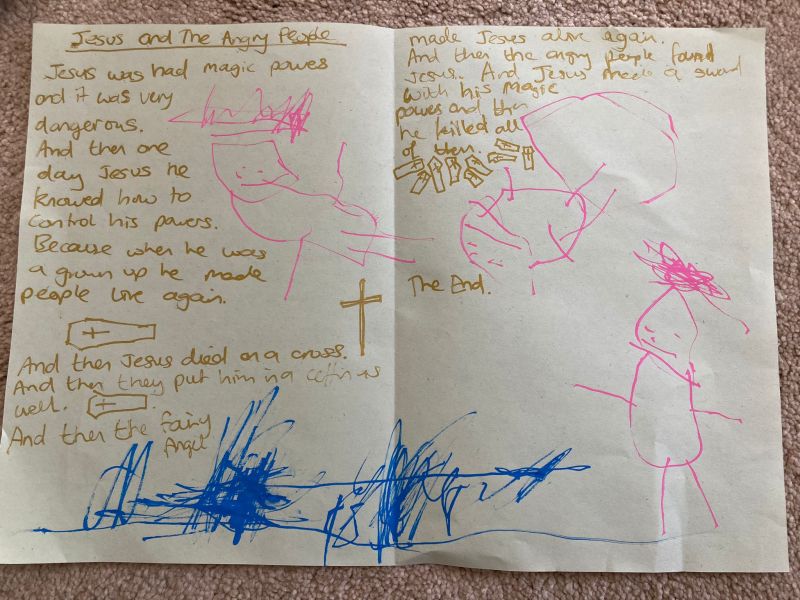 Jesus and The Angry People
Jesus was had magic powers
and it was very
dangerous.
And then one
day Jesus he
knowed how to
control his powers.
Because when he was
a grown up he made
people live again.
And then Jesus died on a cross.
And then they put him in a coffin as
well.
And then the fairy
Angel
made Jesus alive again.
And then the angry people found
Jesus. And Jesus made a sword
with his magic
powers and then
he killed all
of them.
The End.